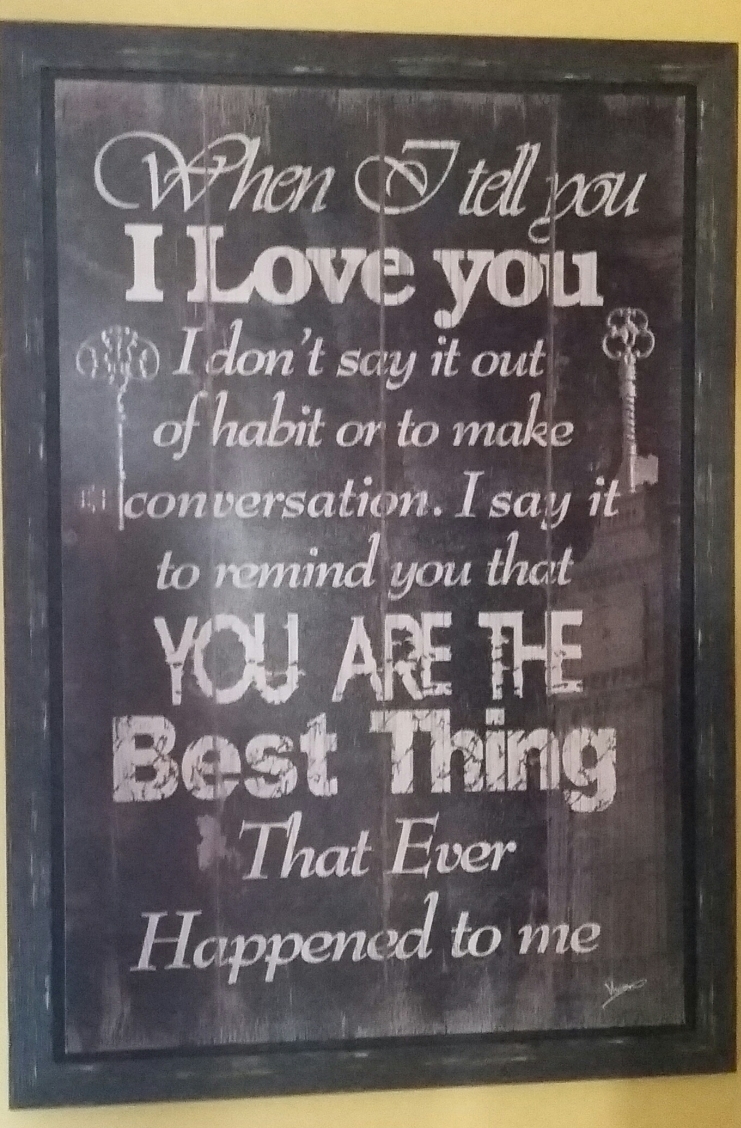 When I tell you
I Love you
I don't say it out
of habit or to make
conversation. I say it
to remind you that
YOU ARE THE
Best Thing
That Ever
Happened to me